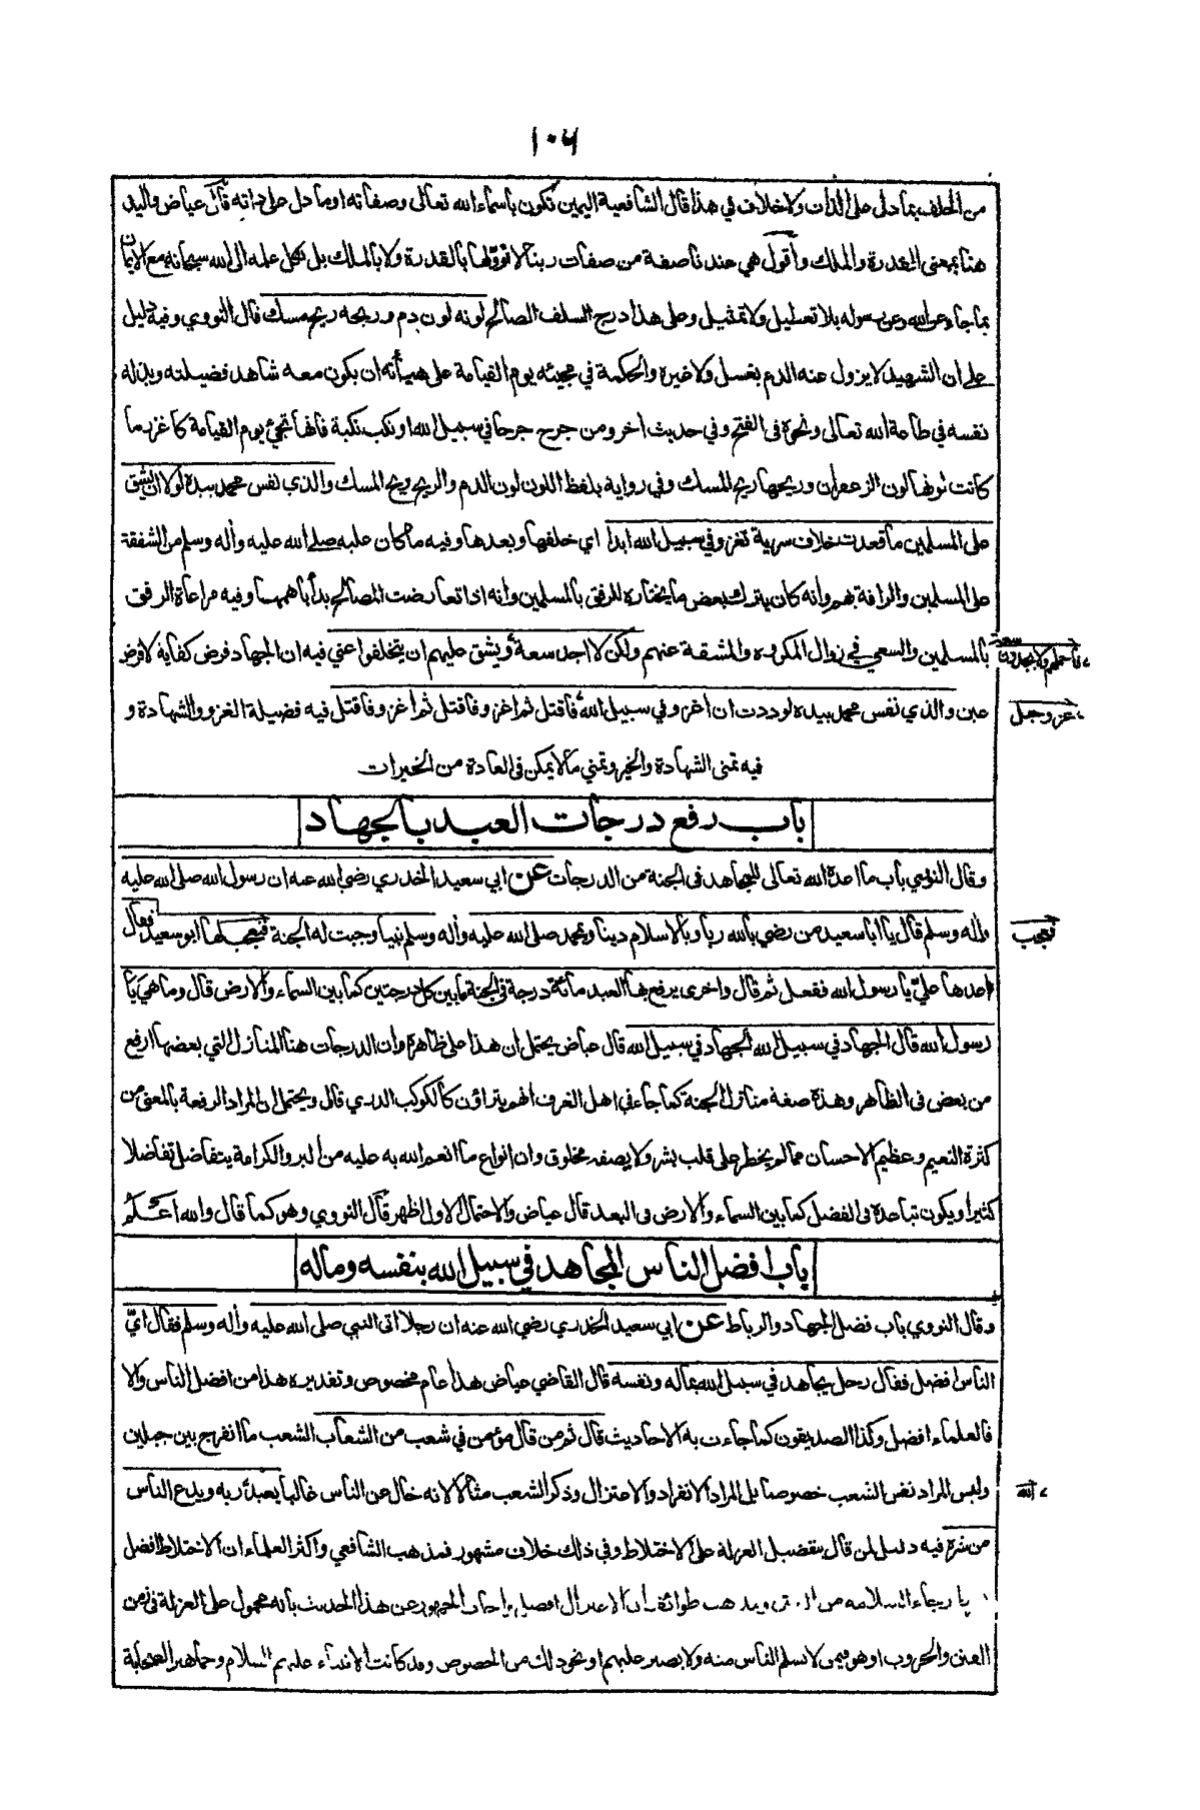 ١٠٦
من الحلف بما دل على الذات ولا خلاف في هذا قال الشافعية اليمين تكون باسماء الله تعالى وصفاته او ما دل على ذاته قال عياض واليد
هنا بمعنى القدرة والملك واقول هي عندنا صفة من صفات ربنا لا نؤولها بالقدرة ولا بالملك بل نكل علمه الى الله سبحانه مع الايمان
بما جاء عن الله وعن رسوله بلا تعطيل ولا تمثيل وعلى هذا درج السلف الصالح لونه لون دم وريحه ريح مسك قال النووي وفيه دليل
على ان الشهيد لا يزول عنه الدم بغسل ولا غيره والحكمة في مجيئه يوم القيامة على هيأته ان يكون معه شاهد فضيلته وبذله
نفسه في طاعة الله تعالى ونحوه في الفتح وفي حديث اخر ومن جرح جرحا في سبيل الله او نكب نكبة فانها تجئ يوم القيامة كاغزر ما
كانت لونها لون الزعفران وريحها ريح المسك وفي رواية بلفظ اللون لون الدم والريح ريح المسك والذي نفس محمد بيده لولا ان يشق
على المسلمين ما قعدت خلاف سرية تغزو في سبيل الله ابدا اي خلفها وبعدها وفيه ما كان عليه صلى الله عليه وأله وسلم من الشفقة
على المسلمين والرافة بهم وانه كان يترك بعض ما يختاره للرفق بالمسلمين وانه اذا تعارضت المصالح بدأ باهمها وفيه مراعاة الرفق
بالمسلمين والسعي في زوال المكروه والمشقة عنهم ولكن لا اجد سعة ويشق عليهم ان يتخلفوا عني فيه ان الجهاد فرض كفاية لا فرض
فاحملهم ولا يجدون سعة
عين والذي نفس محمد بيده لوددت ان اغزو في سبيل الله فاقتل ثم اغزو فاقتل ثم اغزو فاقتل فيه فضيلة الغزو والشهادة و
عز وجل
فيه تمنى الشهادة والخير وتمني ما لا يمكن في العادة من الخيرات
باب رفع درجات العبد بالجهاد
وقال النووي باب ما اعده الله تعالى للمجاهد في الجنة من الدرجات عن ابي سعيد الخدري رضي الله عنه ان رسول الله صلى الله عليه
وأله وسلم قال يا ابا سعيد من رضي بالله ربا وبالاسلام دينا وبمحمد صلى الله عليه وأله وسلم نبيا وجبت له الجنة فتعجب لها ابو سعيد فقال
فعجب
اعدها علي يا رسول الله ففعل ثم قال واخرى يرفع بها العبد مائة درجة في الجنة ما بين كل درجتين كما بين السماء والارض قال وما هي يا
رسول الله قال الجهاد في سبيل الله الجهاد في سبيل الله قال عياض يحتمل ان هذا على ظاهره وان الدرجات هنا المنازل التي بعضها ارفع
من بعض في الظاهر وهذه صفة منازل الجنة كما جاء في اهل الغرف انهم يتراؤن كالكوكب الدري قال ويحتمل ان المراد الرفعة بالمعنى من
كثرة النعيم وعظيم الاحسان مما لم يخطر على قلب بشر ولا يصفه مخلوق وان انواع ما انعم الله به عليه من البر والكرامة يتفاضل تفاضلا
كثيرا ويكون تباعده في الفضل كما بين السماء والارض في البعد قال عياض والاحتمال الاول اظهر قال النووي وهو كما قال والله اعلم
باب افضل الناس المجاهد في سبيل الله بنفسه وماله
وقال النووي باب فضل الجهاد والرباط عن ابي سعيد الخدري رضي الله عنه ان رجلا اتى النبي صلى الله عليه وأله وسلم فقال اي
الناس افضل فقال رجل يجاهد في سبيل الله بماله ونفسه قال القاضي عياض هذا عام مخصوص وتقديره هذا من افضل الناس والا
فالعلماء افضل وكذا الصديقون كما جاءت به الاحاديث قال ثم من قال مؤمن في شعب من الشعاب الشعب ما انفرج بين جبلين
وليس المراد نفس الشعب خصوصا بل المراد الانفراد والاعتزال وذكر الشعب مثالا لانه خال عن الناس غالبا يعبد ربه ويدع الناس
الله
من شره فيه دليل لمن قال بتفضيل العزلة على الاختلاط وفي ذلك خلاف مشهور فمذهب الشافعي واكثر العلماء ان الاختلاط افضل
رجاء السلامة من ومذهب طوائف ان الاعتزال افضل واجاب الجمهور عن هذا الحديث بانه محمول على العزلة في زمن
الفتن والحروب او هو فيمن لا يسلم الناس منه ولا يصبر عليهم او نحو ذلك من الخصوص وقد كانت الانبياء عليهم السلام وجماهير الصحابة